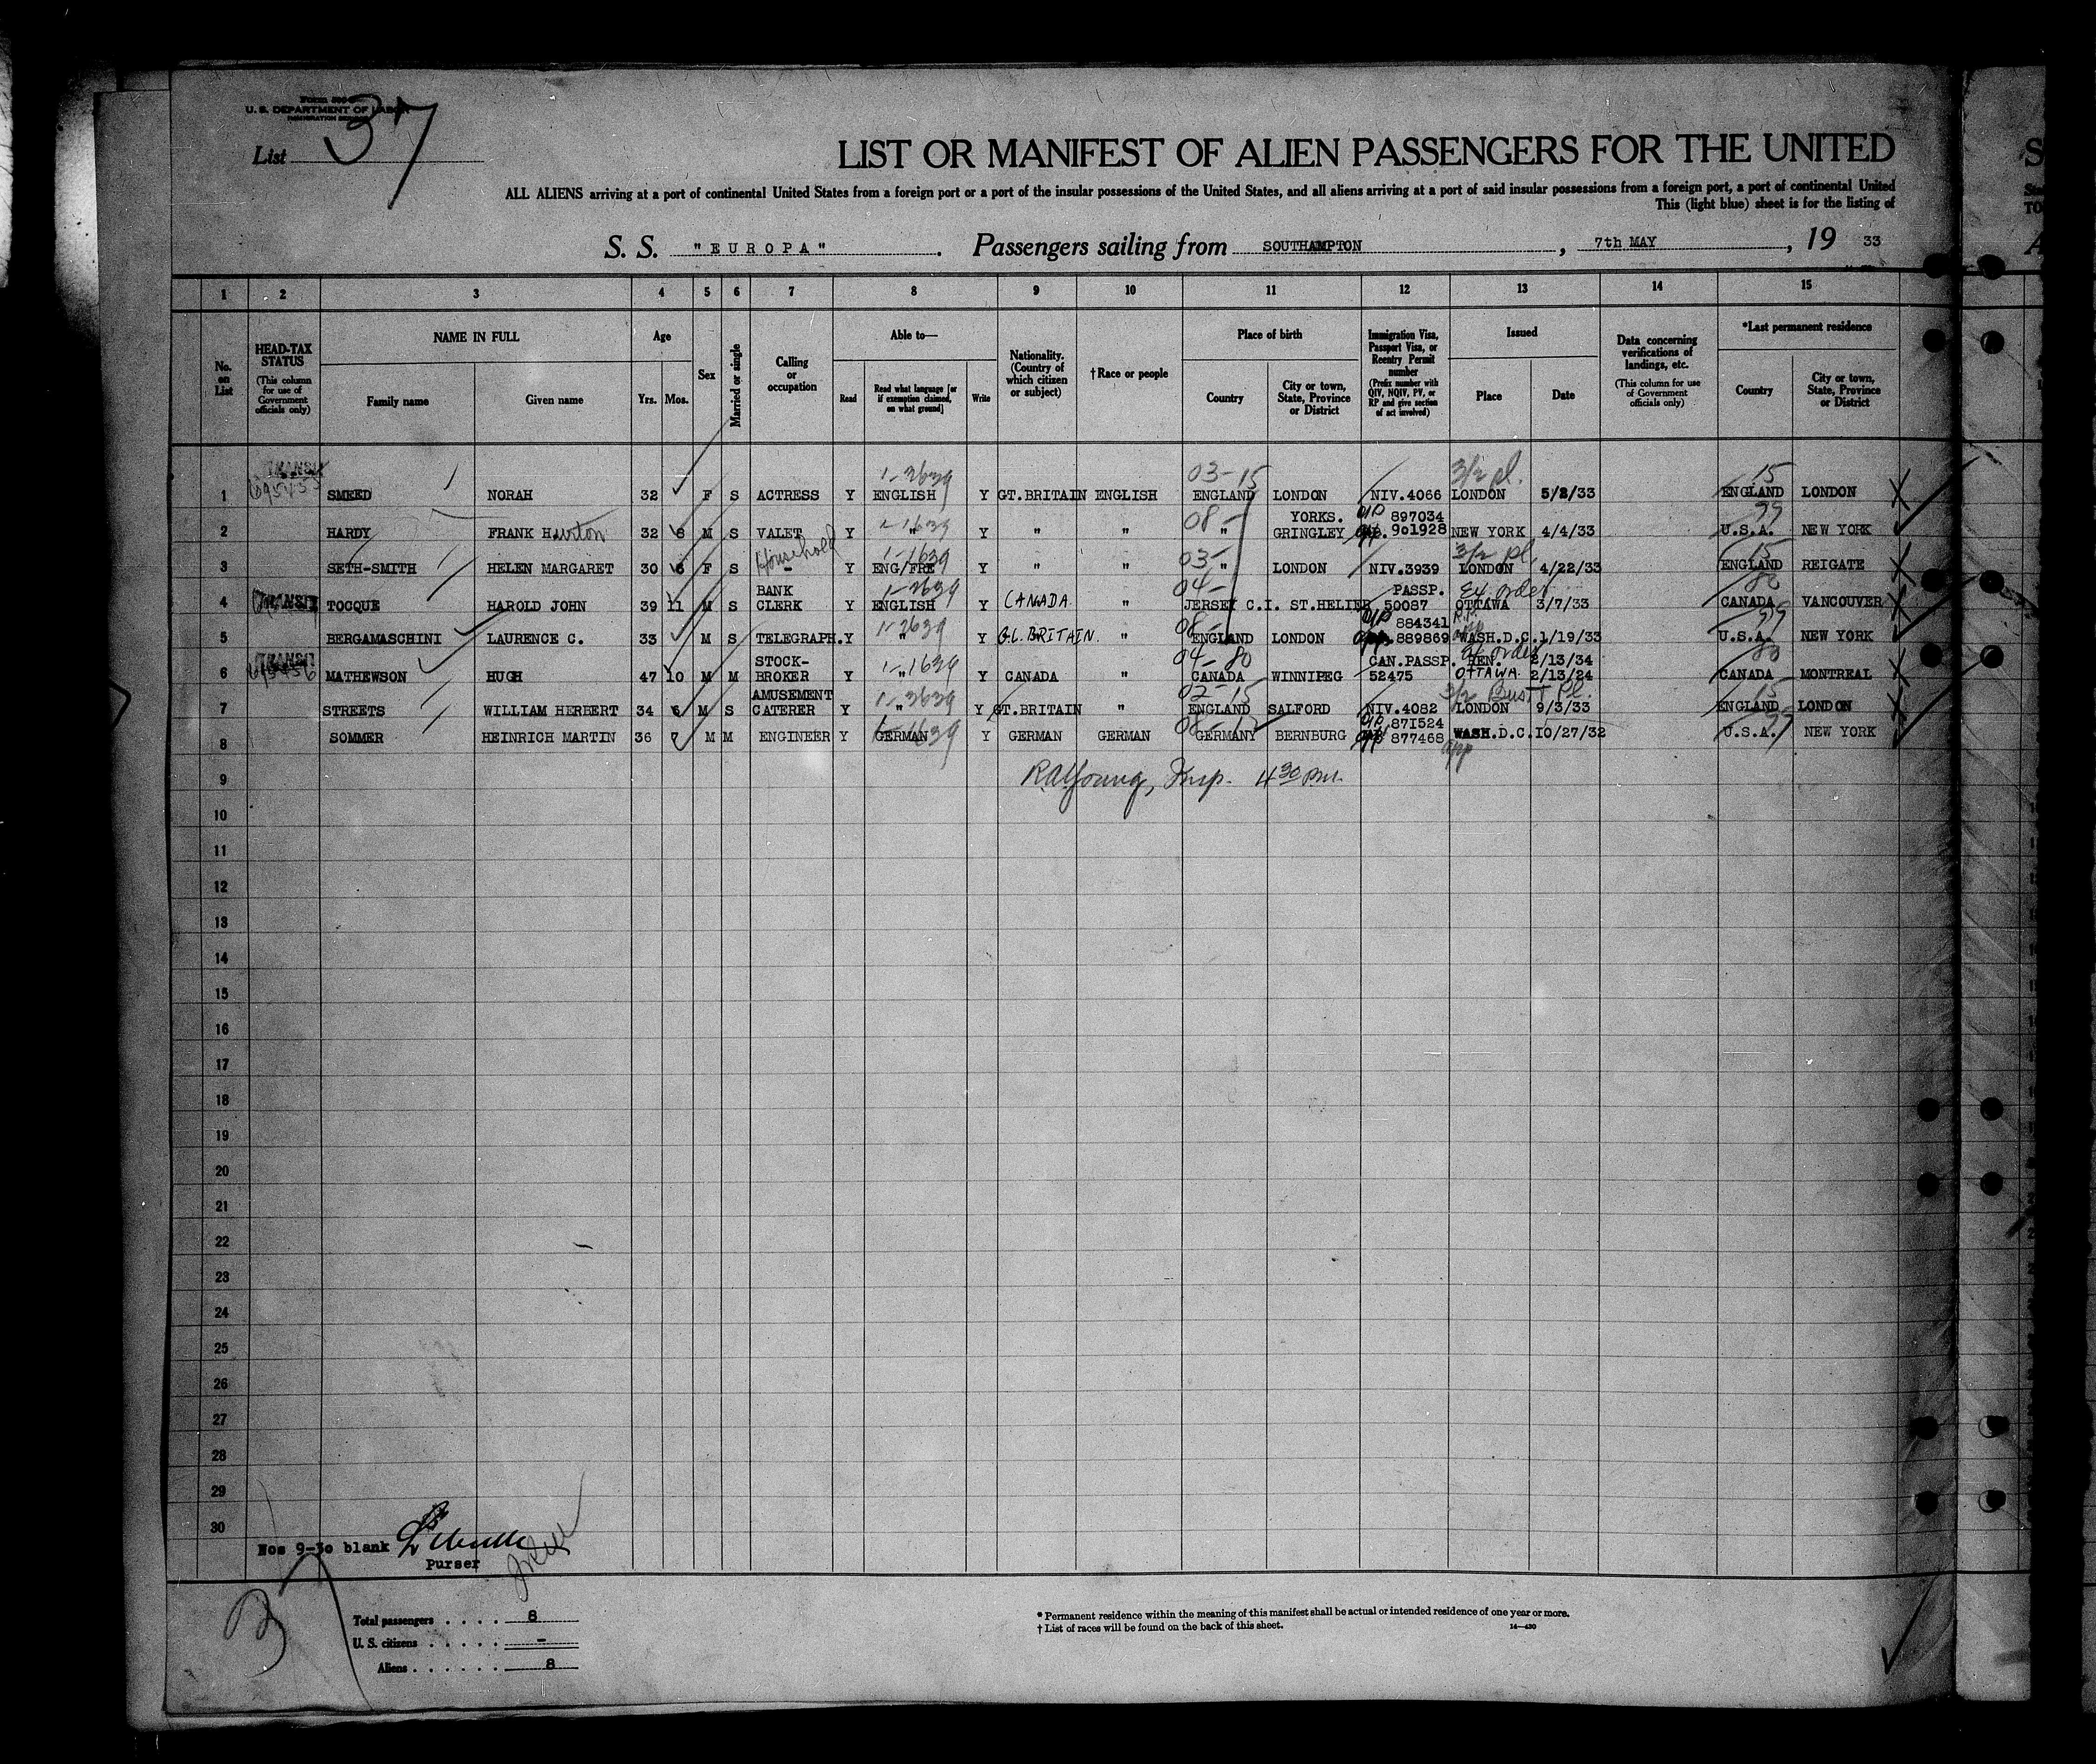 U. S. DEPARTMENT OF LABOR
IMMIGRATION SERVICE
List 37
LIST OR MANIFEST OF ALIEN PASSENGERS FOR THE UNITED
ALL ALIENS arriving at a port of continental United States from a foreign port or a port of the insular possessions of the United States, and all aliens arriving at a port of said insular possessions from a foreign port, a port of continental United
This (light blue) sheet is for the listing of
S. S. "EUROPA". Passengers sailing from SOUTHAMPTON, 7th MAY, 19 33
1 2 3 4 5 6 7 8 9 10 11 12 13 14 15
No. on List
HEAD-TAX STATUS (This column for use of Government officials only)
NAME IN FULL
Family name Given name
Age
Yrs. Mos.
Sex
Married or single
Calling or occupation
Able to—
Read Read what language [or if exemption claimed, on what ground] Write
Nationality. (Country of which citizen or subject)
†Race or people
Place of birth
Country City or town, State, Province or District
Immigration Visa, Passport Visa, or Reentry Permit number (Prefix number with QIV, NQIV, PV, or RP and give section of act involved)
Issued
Place Date
Data concerning verifications of landings, etc. (This column for use of Government officials only)
*Last permanent residence
Country City or town, State, Province or District
TRANSIT 1-2639 03-15 3/2 pl. 15
1 SMEED NORAH 32 F S ACTRESS Y ENGLISH Y GT.BRITAIN ENGLISH ENGLAND LONDON NIV.4066 LONDON 5/2/33 ENGLAND LONDON
1-1639 08- YORKS. 897034 99
2 HARDY FRANK H 32 8 M S VALET Y " Y " " " GRINGLEY 901928 NEW YORK 4/4/33 U.S.A. NEW YORK
Household 1-1639 03- 3/2 pl. 15
3 SETH-SMITH HELEN MARGARET 30 6 F S - Y ENG/FRE Y " " " LONDON NIV.3939 LONDON 4/22/33 ENGLAND REIGATE
BANK 1-2639 04- PASSP. Ex order 80
4 TRANSIT TOCQUE HAROLD JOHN 39 11 M S CLERK Y ENGLISH Y CANADA " JERSEY C.I. ST.HELIER 50087 OTTAWA 3/7/33 CANADA VANCOUVER
1-2639 08- 884341 R.P. 99
5 BERGAMASCHINI LAURENCE C. 33 M S TELEGRAPH. Y " Y Gt. BRITAIN. " ENGLAND LONDON 889869 WASH.D.C. 1/19/33 U.S.A. NEW YORK
TRANSIT STOCK- 1-1639 04-80 CAN.PASSP. REN. Ex order 2/13/34 80
6 MATHEWSON HUGH 47 10 M M BROKER Y " Y CANADA " CANADA WINNIPEG 52475 OTTAWA. 2/13/24 CANADA MONTREAL
AMUSEMENT 1-3639 02-15 3/2 Bus. Pl. 15
7 STREETS WILLIAM HERBERT 34 6 M S CATERER Y " Y GT.BRITAIN " ENGLAND SALFORD NIV.4082 LONDON 9/3/33 ENGLAND LONDON
871524 99
8 SOMMER HEINRICH MARTIN 36 7 M M ENGINEER Y GERMAN Y GERMAN GERMAN GERMANY BERNBURG 877468 WASH.D.C. 10/27/32 U.S.A. NEW YORK
9 RAYoung, Insp. 4 30 pm.
10
11
12
13
14
15
16
17
18
19
20
21
22
23
24
25
26
27
28
29
30
Nos 9-30 blank
Purser
Total passengers . . . . 8
U. S. citizens . . . . . -
Aliens . . . . . . 8
* Permanent residence within the meaning of this manifest shall be actual or intended residence of one year or more.
† List of races will be found on the back of this sheet. 14—430